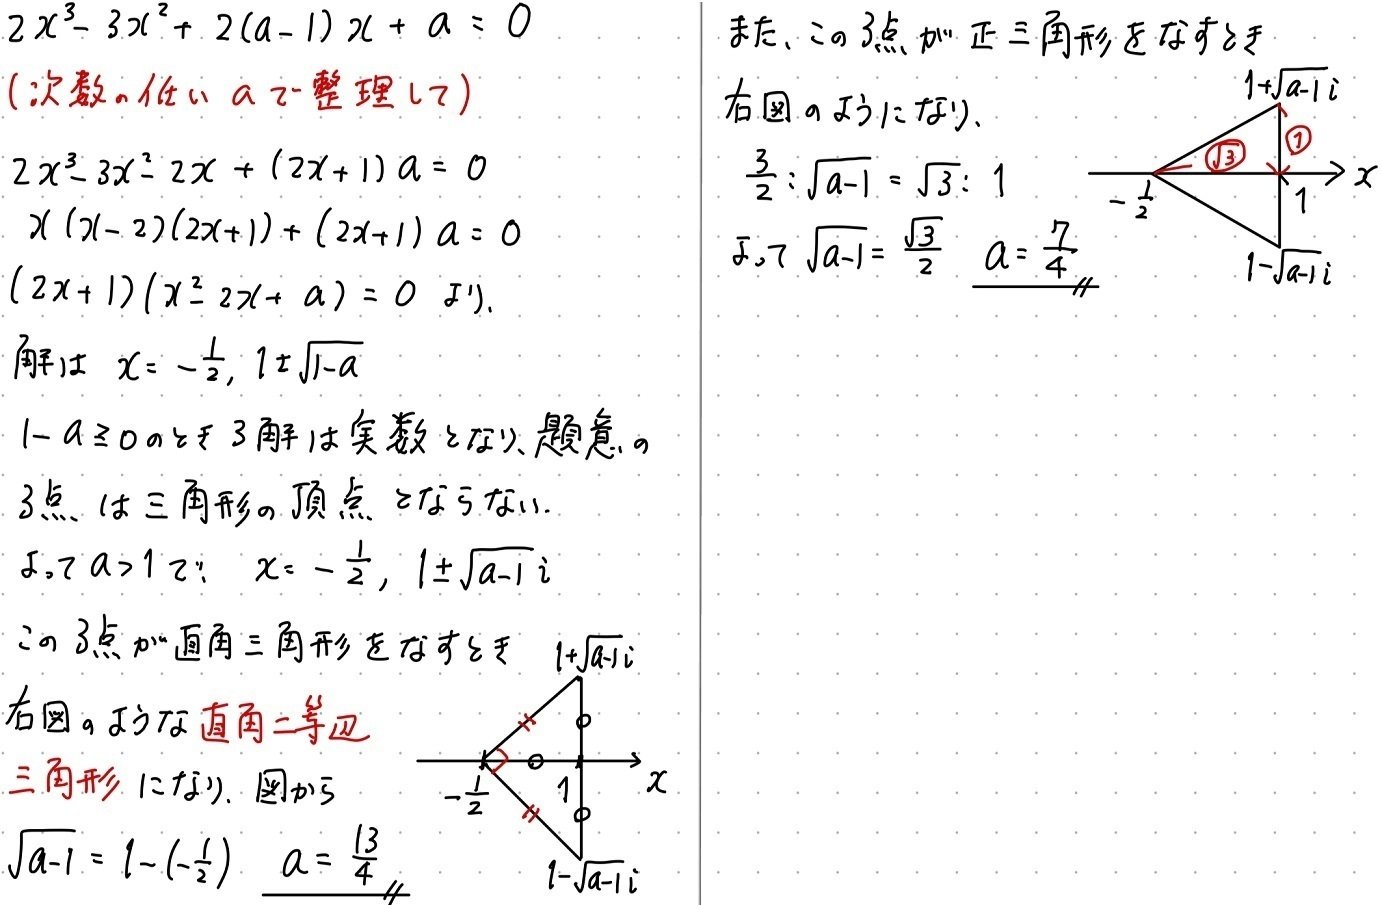 2x³-3x²+2(a-1)x+a=0
(次数の低いaで整理して)
2x³-3x²-2x+(2x+1)a=0
x(x-2)(2x+1)+(2x+1)a=0
(2x+1)(x²-2x+a)=0 より、
解は x=-1/2, 1±√(1-a)
1-a≧0のとき3解は実数となり、題意の
3点は三角形の頂点とならない.
よってa>1で x=-1/2, 1±√(a-1) i
この3点が直角三角形をなすとき
右図のような直角二等辺
三角形になり、図から
√(a-1)=1-(-1/2) a=13/4
1+√(a-1) i
-1/2 1 x
1-√(a-1) i
また、この3点が正三角形をなすとき
右図のようになり、
3/2:√(a-1)=√3:1
よって √(a-1)=√3/2 a=7/4
1+√(a-1) i
√3 1
-1/2 1 x
1-√(a-1) i